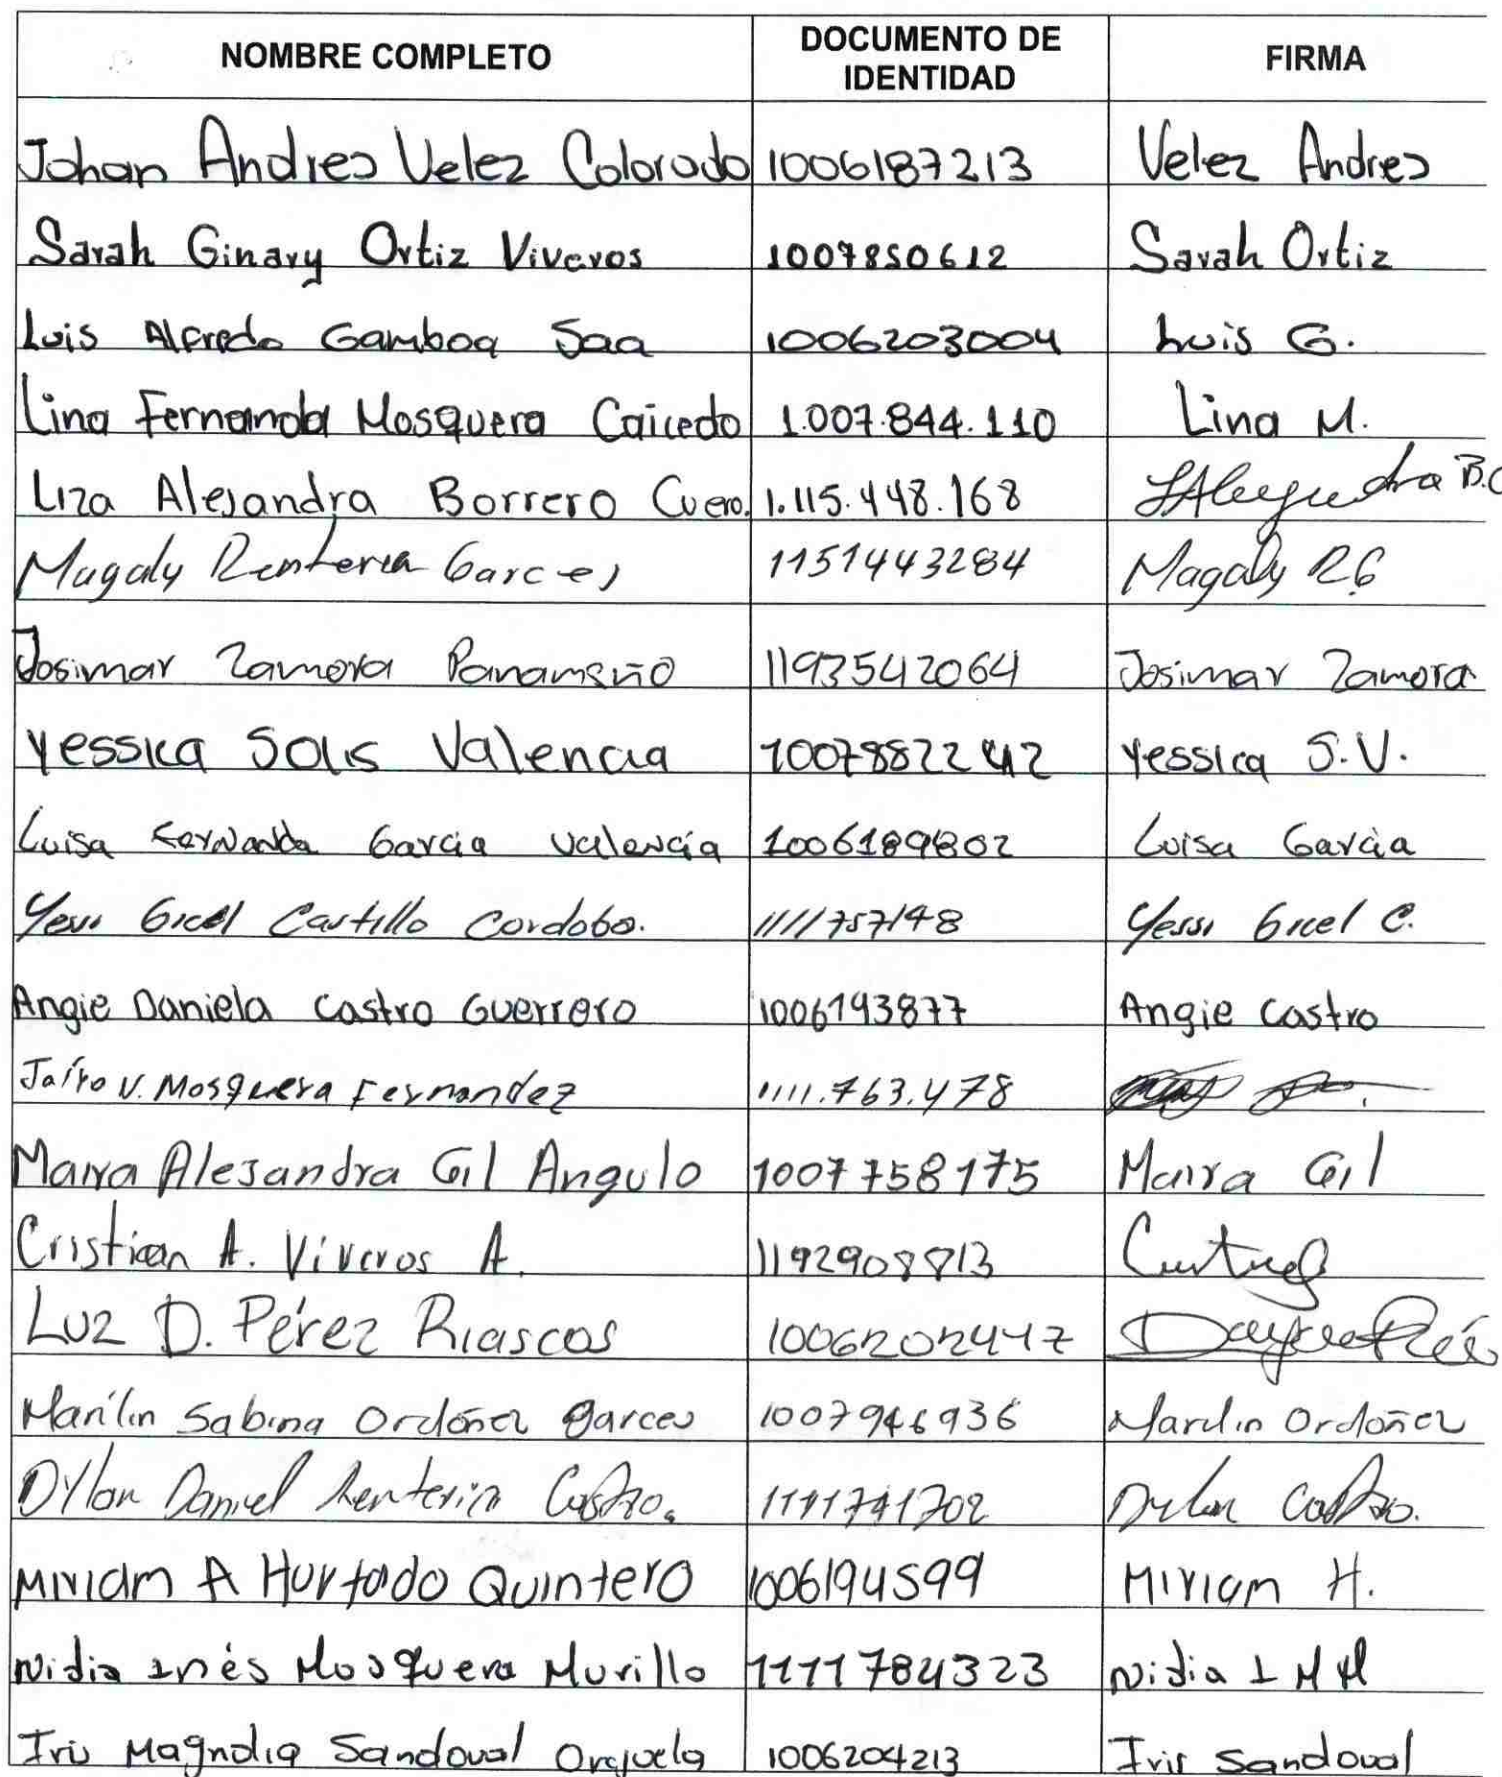 NOMBRE COMPLETO DOCUMENTO DE IDENTIDAD FIRMA
Johan Andres Velez Colorado 1006187213 Velez Andres
Sarah Ginary Ortiz Viveros 1007850612 Sarah Ortiz
Luis Alfredo Gamboa Saa 1006203004 Luis G.
Lina Fernanda Mosquera Caicedo 1.007.844.110 Lina M.
Liza Alejandra Borrero Cuero. 1.115.448.168 B.C
Magaly Renteria Garces 1151443284 Magaly R G
Josimar Zamora Panameño 1193542064 Josimar Zamora
Yessica Solis Valencia Yessica S.V.
Luisa Fernanda Garcia Valencia 1006189802 Luisa Garcia
Yessi Gicel Castillo Cordoba. 1111757148 Yessi Gicel C.
Angie Daniela Castro Guerrero 1006193877 Angie Castro
Jairo V. Mosquera Fernandez 1111.763.478
Maira Alejandra Gil Angulo 1007758175 Maira Gil
Cristian A. Viveros A. 1192908813
Luz D. Pérez Riascos 1006202447
Marilin Sabina Ordoñez Garces 1007946936 Marilin Ordoñez
Dylan Daniel Renteria Castro. 1111741702 Dylan Castro.
Miriam A Hurtado Quintero 1006194599 Miriam H.
Nidia Inés Mosquera Murillo 1111784323 Nidia I M M
Iris Magnolia Sandoval Orejuela 1006204213 Iris Sandoval